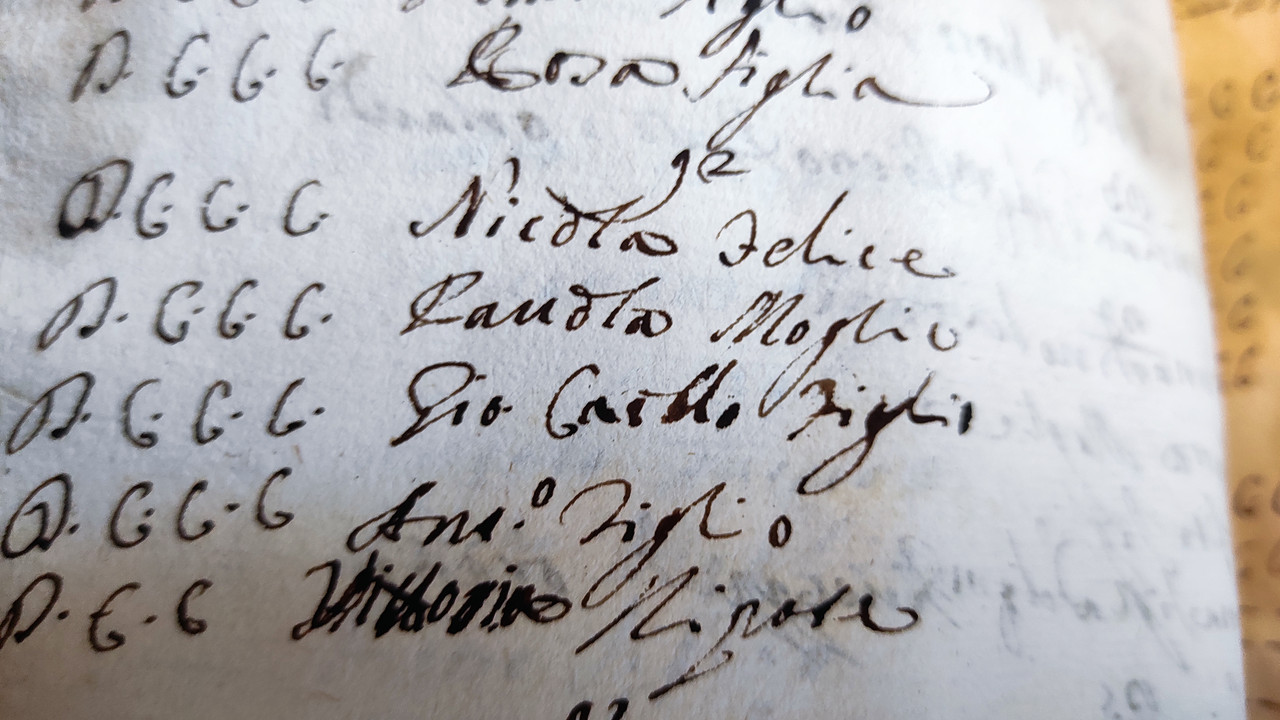 figlio
D. C. C. C. Rosa figlia
92
D. C. C. C. Nicola Felice
D. C. C. C. Moglie
D. C. C. C. Gio Carllo figlio
D. C. C. C. Ant.º figlio
D. C. C Vittoria Nipote
93